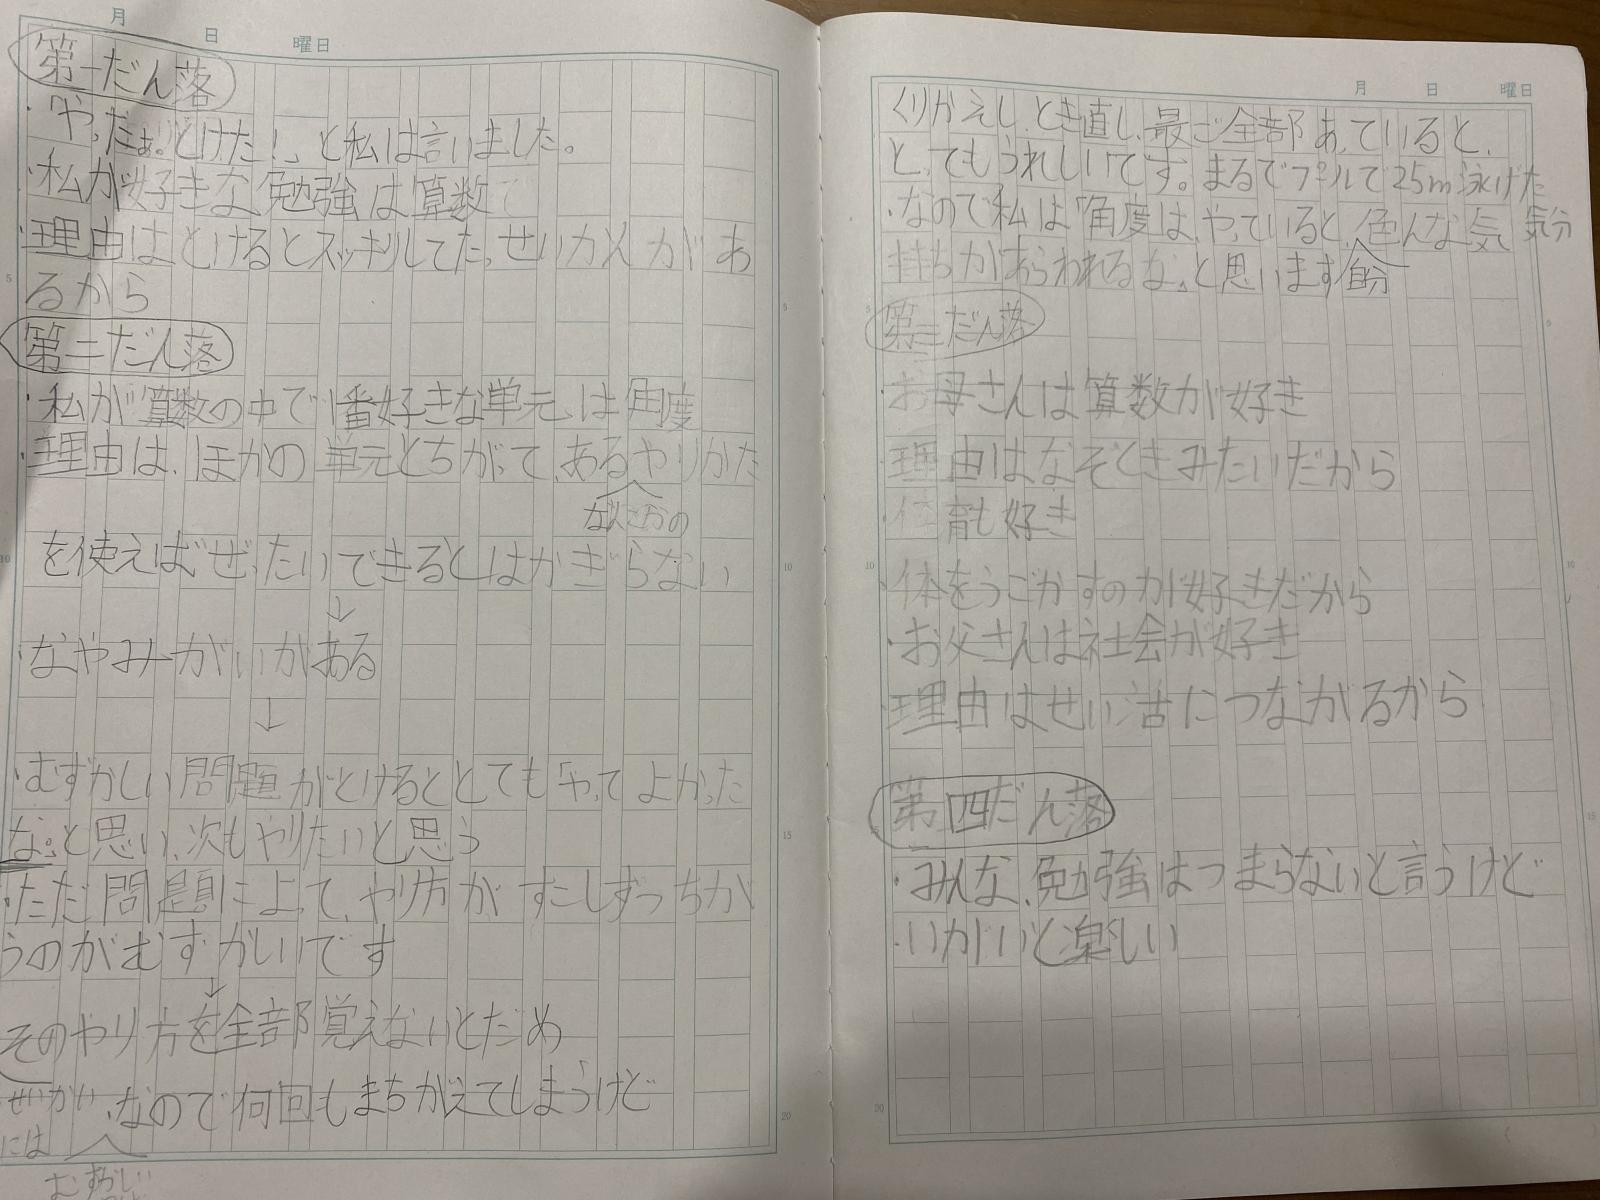 月 日 曜日
第一だん落
・「やったぁ。とけた!」と私は言いました。
・私が好きな勉強は算数
・理由はとけるとスッキリしてたっせいかんがあ
るから
第二だん落
・私が算数の中で1番好きな単元は「角度」
・理由は、ほかの単元とちがって、あるやりかた
を使えばぜったいできるとはかぎらない
↓
・なやみがいがある
↓
・むずかしい問題がとけるととても「やってよかった
な。」と思い、次もやりたいと思う
・ただ問題によって、やり方がすこしずつちが
うのがむずかしいです
↓
そのやり方を全部覚えないとだめ
せいかい
には
・なので何回もまちがえてしまうけど
むずかしい
月 日 曜日
くりかえし、とき直し、最ご全部あっていると、
とってもうれしいです。まるでプールで25m泳げた
気分
・なので私は「角度は、やっていると、色んな気
持ちがあらわれるな。」と思います
自分
第三だん落
・お母さんは算数が好き
理由はなぞときみたいだから
体育も好き
・体をうごかすのが好きだから
・お父さんは社会が好き
理由はせい活につながるから
第四だん落
・みんな、勉強はつまらないと言うけど
・いがいと楽しい
5
10
15
20
5
10
15
20